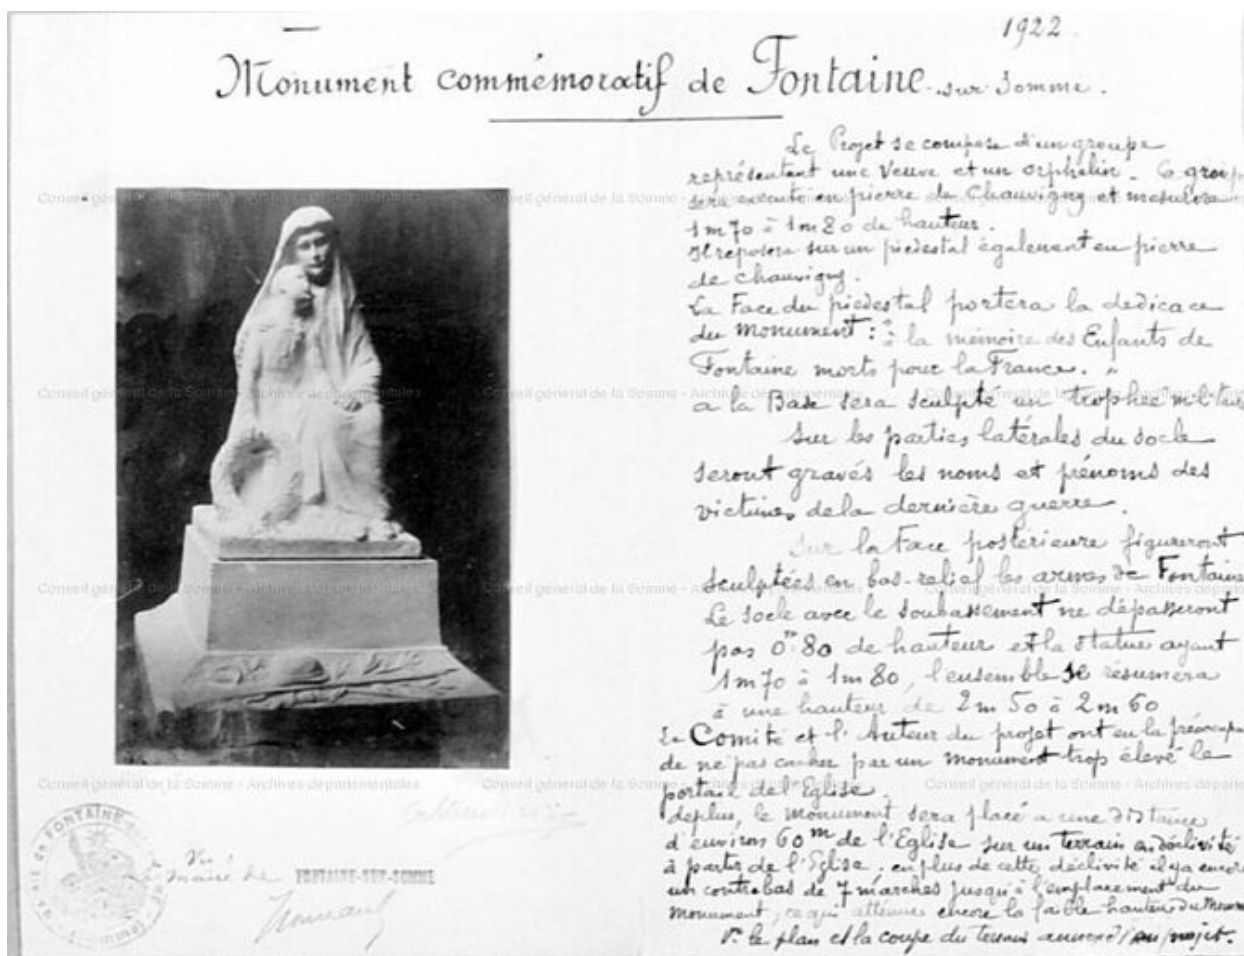 1922
Monument commémoratif de Fontaine-sur-Somme.
Le Projet se compose d'un groupe
représentant une Veuve et un orphelin. Ce groupe
sera executé en pierre de Chauvigny et mesurera
1m70 à 1m80 de hauteur.
Il reposera sur un piédestal également en pierre
de chauvigny.
La Face du piedestal portera la dedicace
du Monument : "à la mémoire des Enfants de
Fontaine morts pour la France."
a la Base sera sculpté un trophée
Sur les parties latérales du socle
seront gravés les noms et prénoms des
victimes de la dernière guerre.
Sur la Face postérieure figureront
sculptées en bas-relief les armes de Fontaine
Le socle avec le soubassement ne dépasseront
pas 0m80 de hauteur et la statue ayant
1m70 à 1m80, l'ensemble se résumera
à une hauteur de 2m50 à 2m60
Le Comité et l'Auteur du projet ont eu la
de ne pas cacher par un monument trop élevé le
portail de l'Eglise.
deplus, le monument sera placé a une distance
d'environ 60m de l'Eglise sur un terrain en déclivité
à partir de l'Eglise, en plus de cette déclivité il y a encore
un contrebas de 7 marches jusqu'à l'emplacement du
Monument, ce qui atténue encore la faible hauteur du
Vr le plan et la coupe du terrain annexés au projet.
Vu
Le Maire de FONTAINE-SUR-SOMME
MAIRIE DE FONTAINE
(Somme)
Conseil général de la Somme - Archives départementales